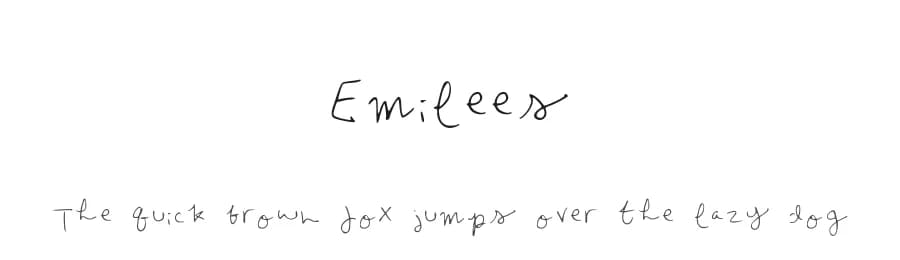 Emilees
The quick brown fox jumps over the lazy dog